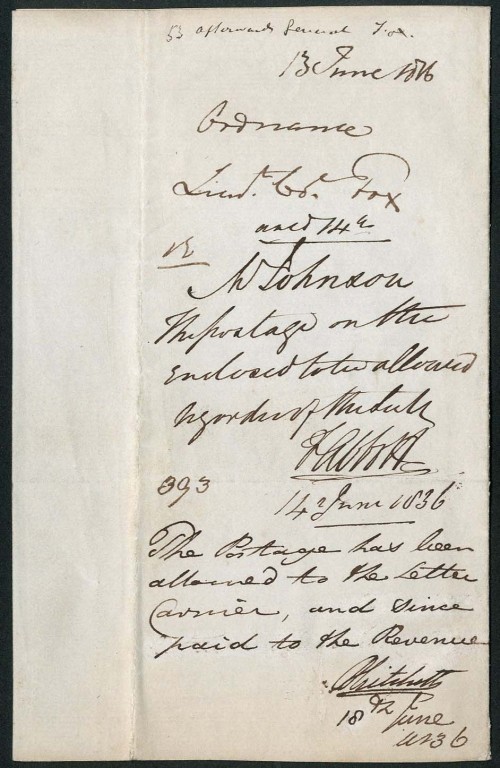 53 afterwards General Fox.
13 June 1836
Ordnance
Lieut. Col. Fox
recd 14th
Mr Johnson
The postage on the
enclosed to be allowed
by order of the
F Abbott
393
14 June 1836
The Postage has been
allowed to the Letter
Carrier, and since
paid to the Revenue
18th June
1836